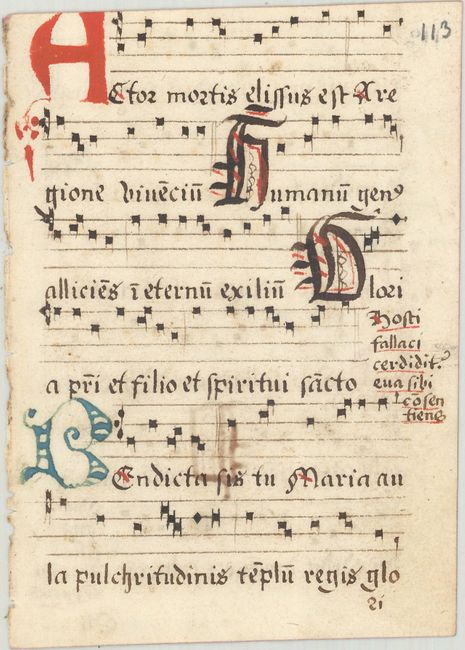 113
Actor mortis elissus est A re
gione vivēciū Humanū gen⁹
alliciēs ī eternū exiliū Glori
a pr̄i et filio et spiritui sācto
Hosti
fallaci
cerdidit.
eua sibi
cōsen
tiens
Bendicta sis tu Maria au
la pulchritudinis tēplū regis glo
ri